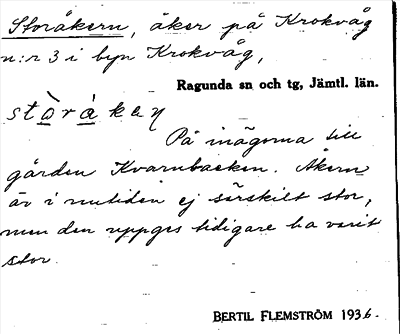 Storåkern, åker på Krokvåg
n:r 3 i byn Krokvåg,
Ragunda sn och tg, Jämtl. län.
stòràkeɳ
På inägorna till
gården Kvarnbacken. Åkern
är i nutiden ej särskilt stor,
men den uppges tidigare ha varit
stor.
BERTIL FLEMSTRÖM 1936.